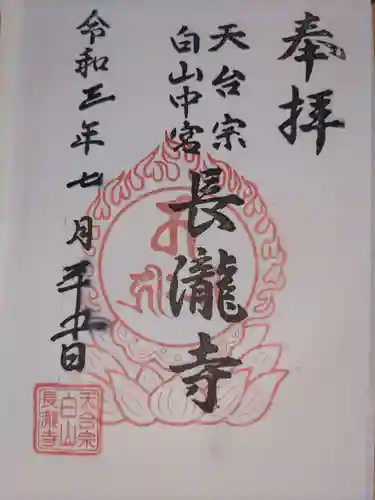 奉拝
天台宗
白山中宮
長瀧寺
令和三年七月廿九日
天台宗
白山
長瀧寺